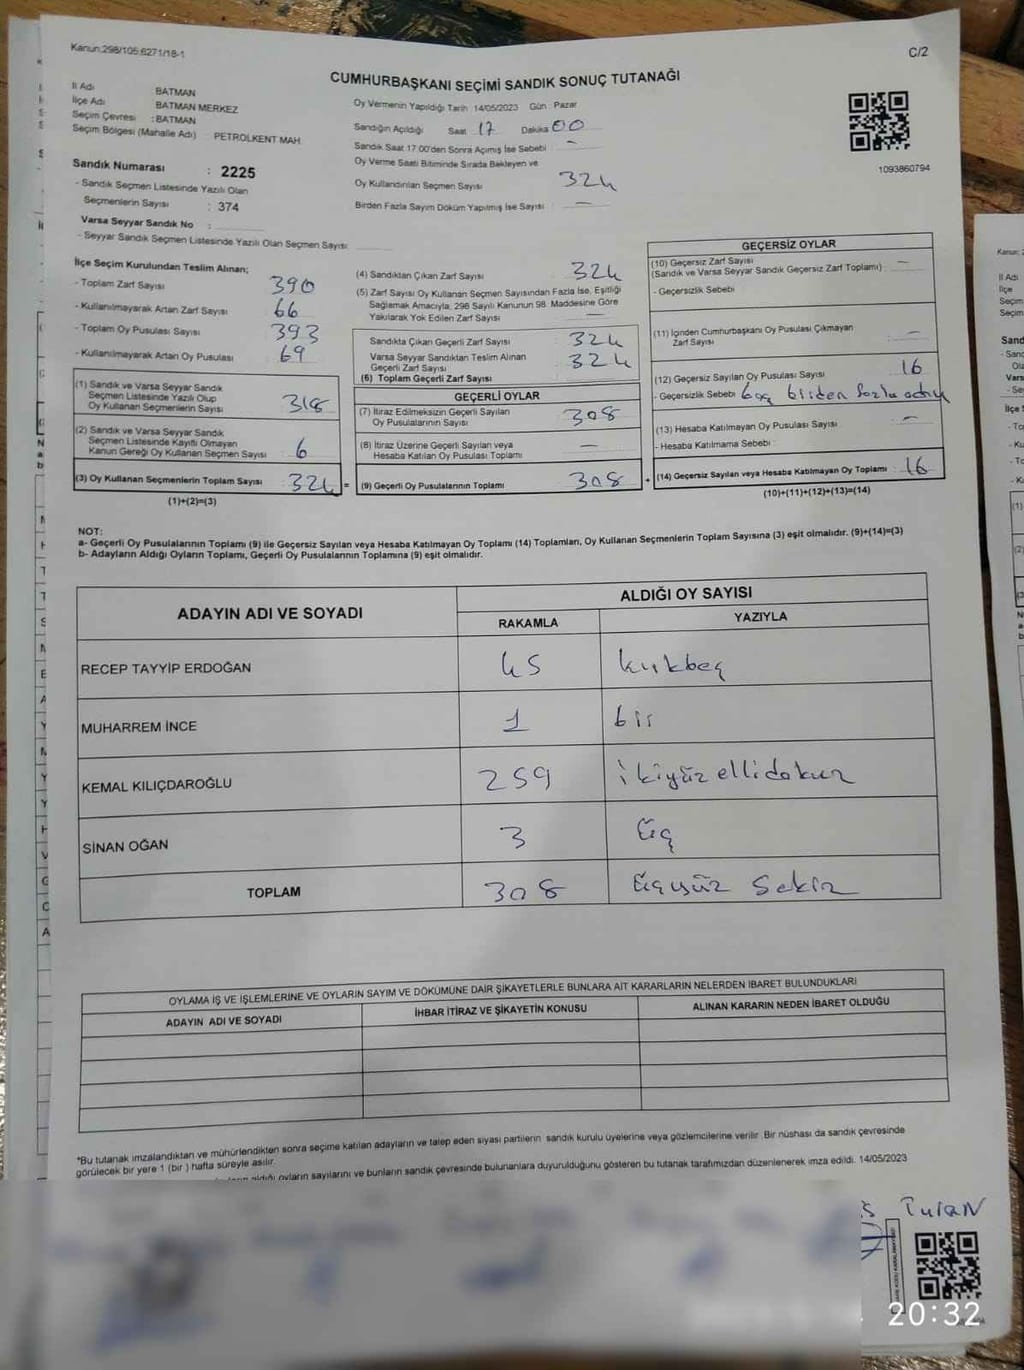 Kanun:298/105:6271/18-1
C/2
CUMHURBAŞKANI SEÇİMİ SANDIK SONUÇ TUTANAĞI
İl Adı BATMAN
İlçe Adı BATMAN MERKEZ
Seçim Çevresi : BATMAN
Seçim Bölgesi (Mahalle Adı) : PETROLKENT MAH
Oy Vermenin Yapıldığı Tarih 14/05/2023 Gün : Pazar
Sandığın Açıldığı Saat 17 Dakika 00
Sandık Saat 17:00'den Sonra Açımış İse Sebebi –
Oy Verme Saati Bitiminde Sırada Bekleyen ve
Oy Kullandırılan Seçmen Sayısı 324
Birden Fazla Sayım Döküm Yapılmış İse Sayısı : —
1093860794
Sandık Numarası : 2225
- Sandık Seçmen Listesinde Yazılı Olan
Seçmenlerin Sayısı : 374
Varsa Seyyar Sandık No :
- Seyyar Sandık Seçmen Listesinde Yazılı Olan Seçmen Sayısı:
İlçe Seçim Kurulundan Teslim Alınan;
- Toplam Zarf Sayısı 390
- Kullanılmayarak Artan Zarf Sayısı 66
- Toplam Oy Pusulası Sayısı 393
- Kullanılmayarak Artan Oy Pusulası 69
(1) Sandık ve Varsa Seyyar Sandık
Seçmen Listesinde Yazılı Olup
Oy Kullanan Seçmenlerin Sayısı 318
(2) Sandık ve Varsa Seyyar Sandık
Seçmen Listesinde Kayıtlı Olmayan
Kanun Gereği Oy Kullanan Seçmen Sayısı : 6
(3) Oy Kullanan Seçmenlerin Toplam Sayısı : 324 =
(1)+(2)=(3)
(4) Sandıktan Çıkan Zarf Sayısı 324
(5) Zarf Sayısı Oy Kullanan Seçmen Sayısından Fazla İse, Eşitliği
Sağlamak Amacıyla, 298 Sayılı Kanunun 98. Maddesine Göre
Yakılarak Yok Edilen Zarf Sayısı —
Sandıkta Çıkan Geçerli Zarf Sayısı 324
Varsa Seyyar Sandıktan Teslim Alınan
Geçerli Zarf Sayısı 324
(6) Toplam Geçerli Zarf Sayısı
GEÇERLİ OYLAR
(7) İtiraz Edilmeksizin Geçerli Sayılan
Oy Pusulalarının Sayısı 308
(8) İtiraz Üzerine Geçerli Sayılan veya
Hesaba Katılan Oy Pusulası Toplamı —
(9) Geçerli Oy Pusulalarının Toplamı 308 +
GEÇERSİZ OYLAR
(10) Geçersiz Zarf Sayısı
(Sandık ve Varsa Seyyar Sandık Geçersiz Zarf Toplamı) : —
- Geçersizlik Sebebi
(11) İçinden Cumhurbaşkanı Oy Pusulası Çıkmayan
Zarf Sayısı —
(12) Geçersiz Sayılan Oy Pusulası Sayısı 16
- Geçersizlik Sebebi
(13) Hesaba Katılmayan Oy Pusulası Sayısı : —
- Hesaba Katılmama Sebebi
(14) Geçersiz Sayılan veya Hesaba Katılmayan Oy Toplamı : 16
(10)+(11)+(12)+(13)=(14)
NOT:
a- Geçerli Oy Pusulalarının Toplamı (9) ile Geçersiz Sayılan veya Hesaba Katılmayan Oy Toplamı (14) Toplamları, Oy Kullanan Seçmenlerin Toplam Sayısına (3) eşit olmalıdır. (9)+(14)=(3)
b- Adayların Aldığı Oyların Toplamı, Geçerli Oy Pusulalarının Toplamına (9) eşit olmalıdır.
ADAYIN ADI VE SOYADI
ALDIĞI OY SAYISI
RAKAMLA YAZIYLA
RECEP TAYYİP ERDOĞAN 45 kırkbeş
MUHARREM İNCE 1 bir
KEMAL KILIÇDAROĞLU 259 ikiyüzellidokuz
SİNAN OĞAN 3 üç
TOPLAM 308 üçyüz sekiz
OYLAMA İŞ VE İŞLEMLERİNE VE OYLARIN SAYIM VE DÖKÜMÜNE DAİR ŞİKAYETLERLE BUNLARA AİT KARARLARIN NELERDEN İBARET BULUNDUKLARI
ADAYIN ADI VE SOYADI İHBAR İTİRAZ VE ŞİKAYETİN KONUSU ALINAN KARARIN NEDEN İBARET OLDUĞU
*Bu tutanak imzalandıktan ve mühürlendikten sonra seçime katılan adayların ve talep eden siyasi partilerin sandık kurulu üyelerine veya gözlemcilerine verilir. Bir nüshası da sandık çevresinde
görülecek bir yere 1 (bir) hafta süreyle asılır.
aldığı oyların sayılarını ve bunların sandık çevresinde bulunanlara duyurulduğunu gösteren bu tutanak tarafımızdan düzenlenerek imza edildi. 14/05/2023
20:32